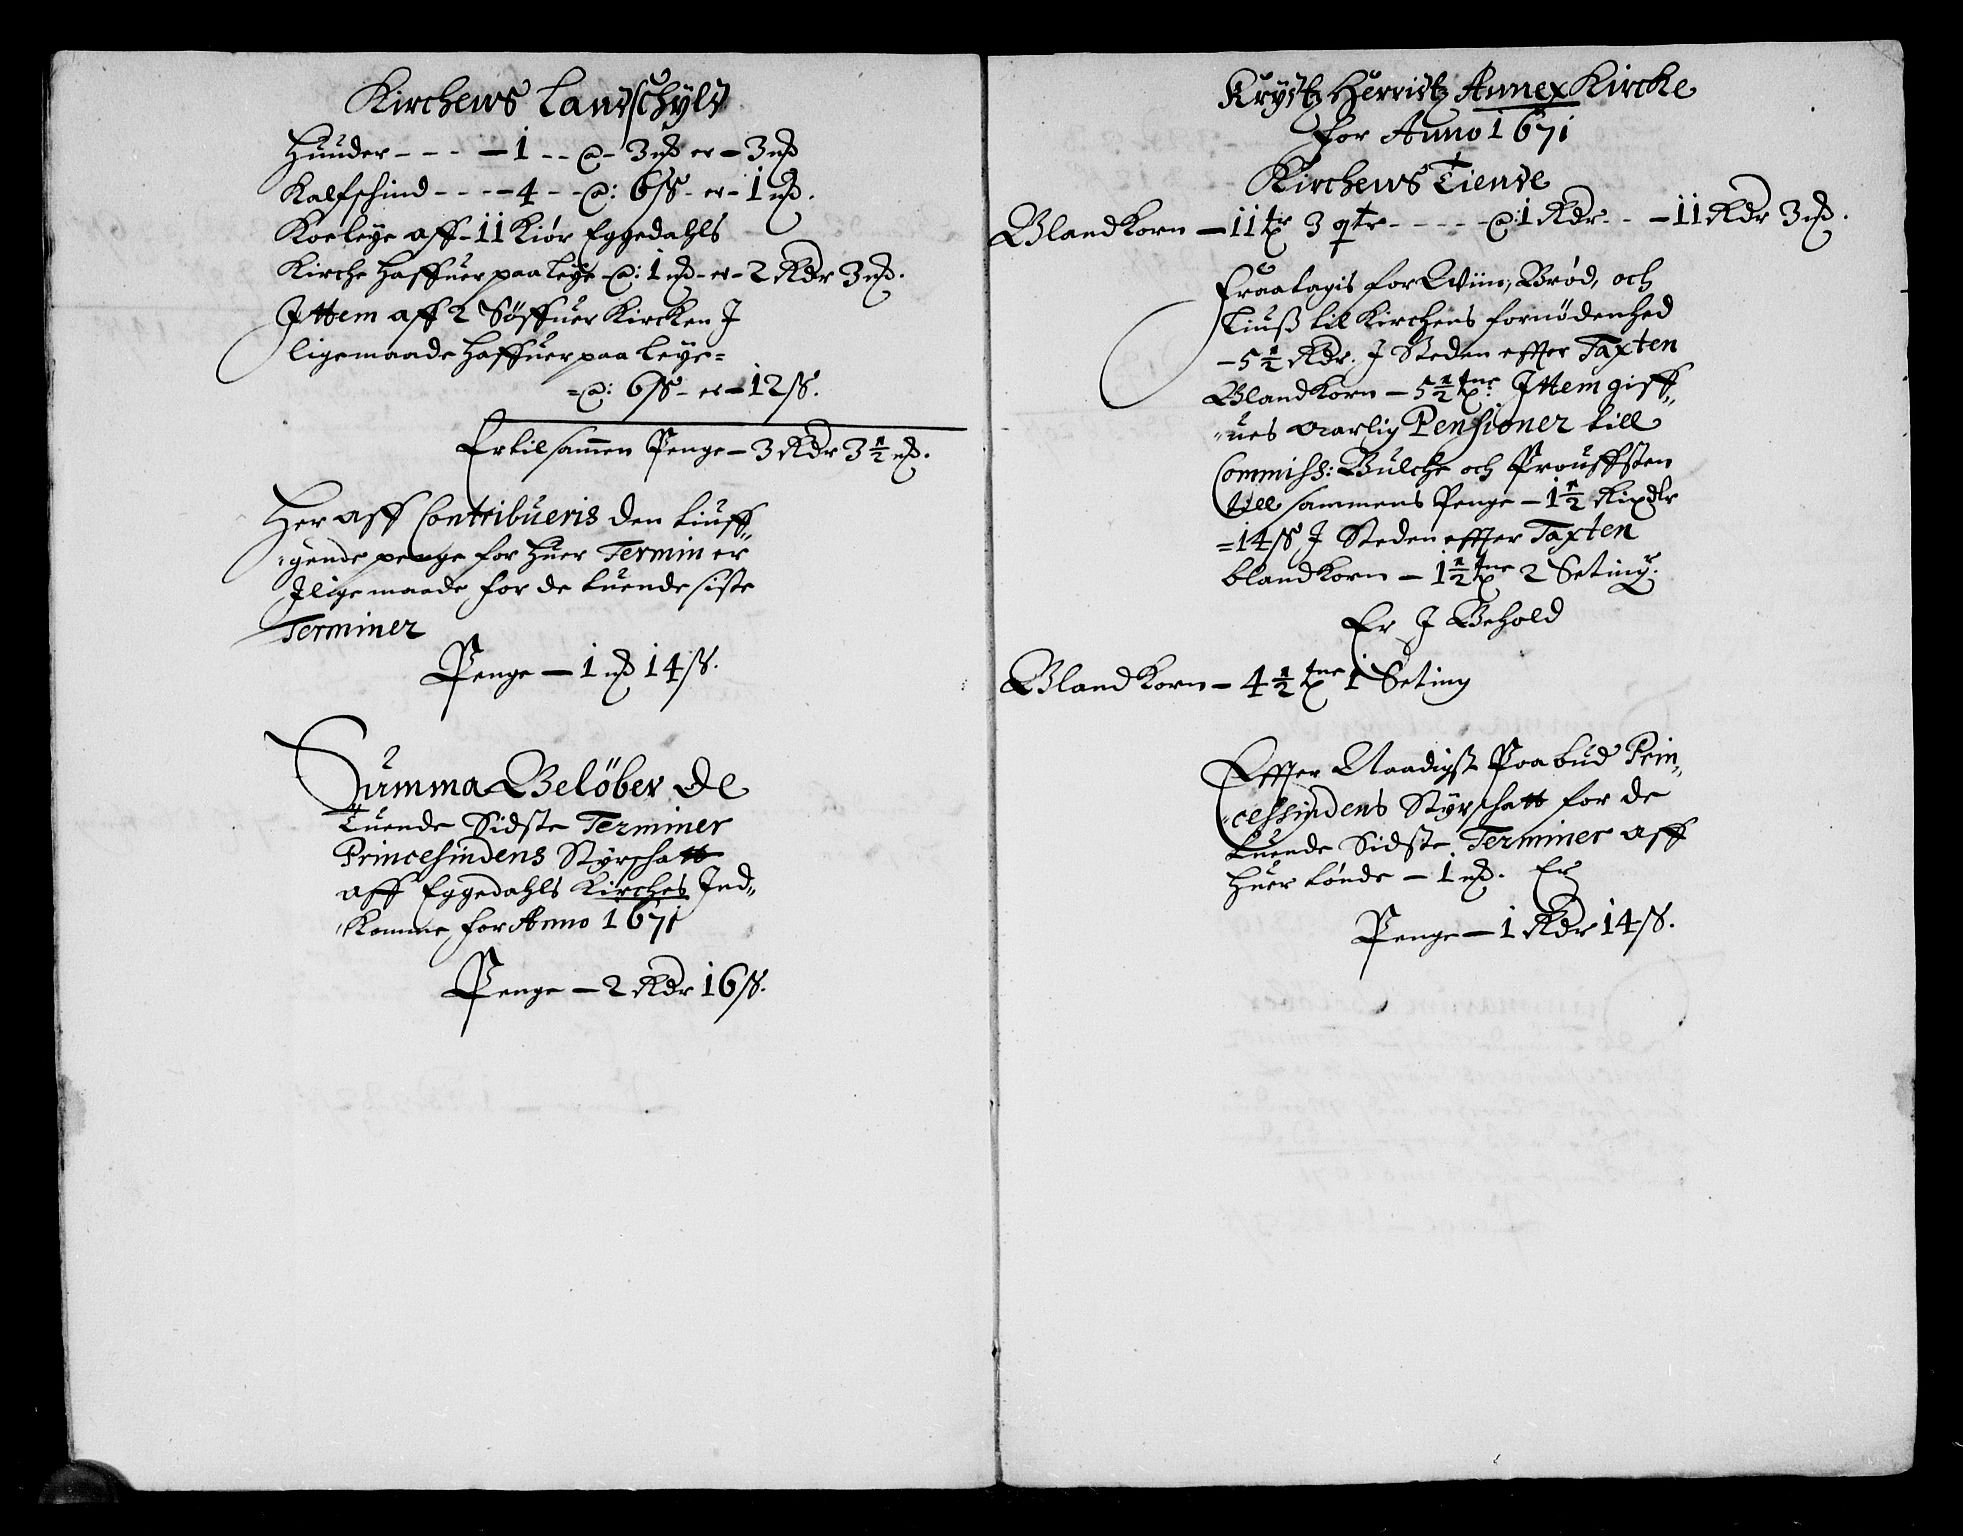 Kirchens Landschyld
Huuder - - - - 1 - - @ - 3 mß er - 3 mß
Kalfschind - - - - 4 - - @: 6 ß - er - 1 mß.
Koeleye aff - 11 Kiør Eggedahls
Kirche haffuer paa leye - @: 1 mß - er - 2 Rdr 3 mß.
Ittem aff 2 Söffuer Kircken J
ligemaade haffuer paa leye =
= @: 6 ß - er - 12 ß.
Er tilsamen Penge - 3 Rdr 3 1/2 mß.
Her aff Contribueris den tiuff„
„gende penge for huer Termin er
Jligemaade for de tuende siste
Terminer
Penge - 1 mß 14 ß.
Summa Belöber De
Tuende Sidste Terminer
Princesindens Styrschatt
aff Eggedahls Kirches Ind„
„Komme for Anno 1671
Penge - 2 Rdr 16 ß.
Herristz Annex Kirche
for Anno 1671
Kirchens Tiende
Blandkorn - 11 tr 3 qtr - - - - - @: 1 Rdr - - - 11 Rdr 3 mß.
Fraatagis for Wiin, Brød, och
Liuß til Kirchens fornödenhed
- 5 1/2 Rdr. J Steden effter Taxten
Blandkorn - 5 1/2 tnr: Ittem giff„
„ues aarlig Pensioner till
Commiss: Bulche och Prouffsten
till sammens Penge - 1 1/2 Rixdlr
= 14 ß J Steden effter Taxten
blandkorn - 1 1/2 tnr 2 Seting:
Er J Behold
Blandkorn - 4 1/2 tnr 1 Seting
Effter Naadigst Paabud Prin„
„cessindens Styrschatt for de
tuende Sidste Terminer aff
huer tønde - 1 mß. Er
Penge - 1 Rdr 14 ß.